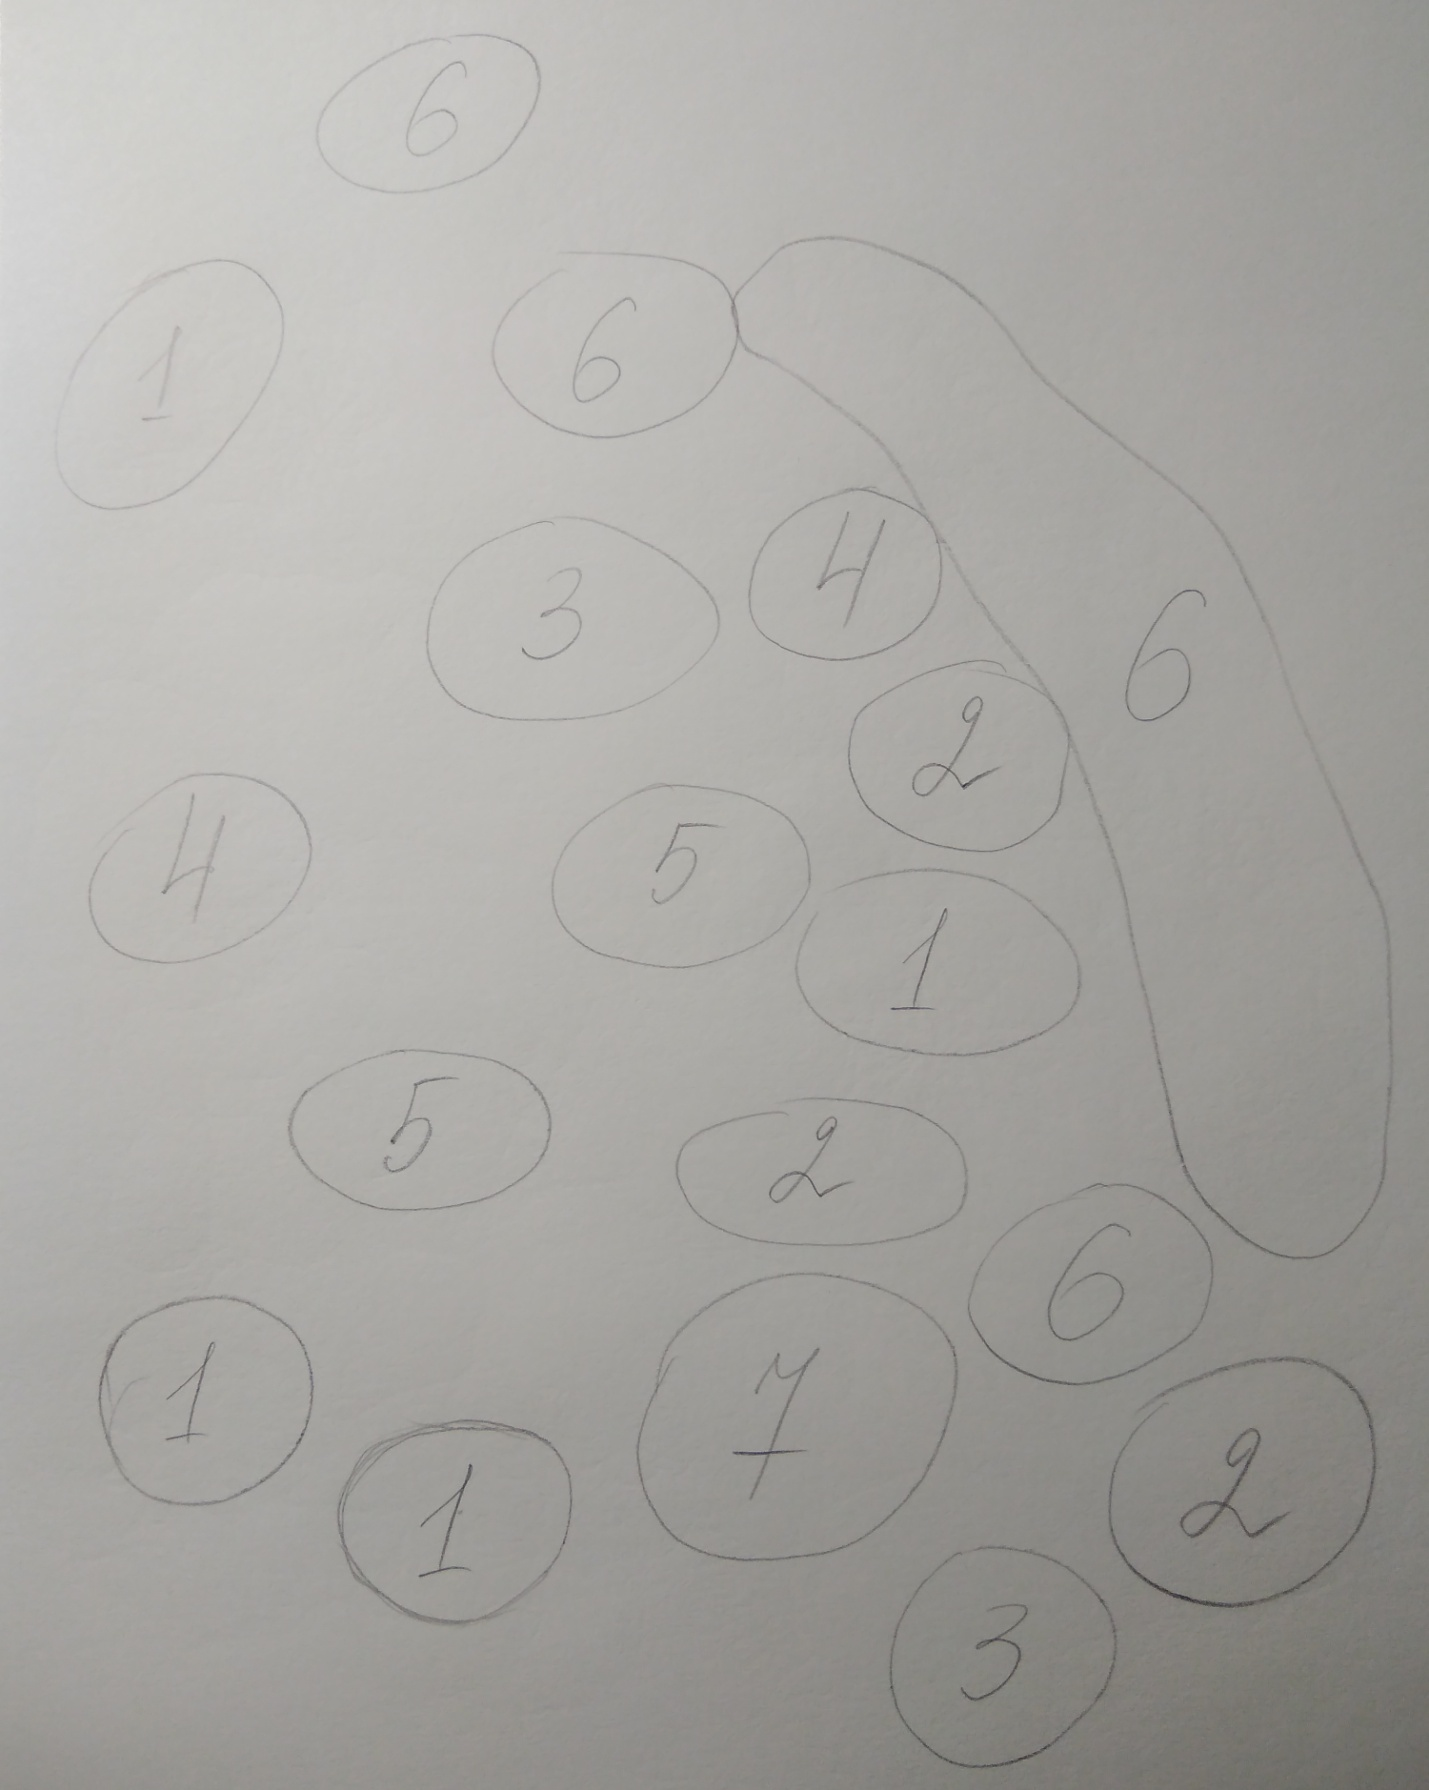 6
1
6
3
4
6
2
4
5
1
5
2
6
1
7
1
2
3